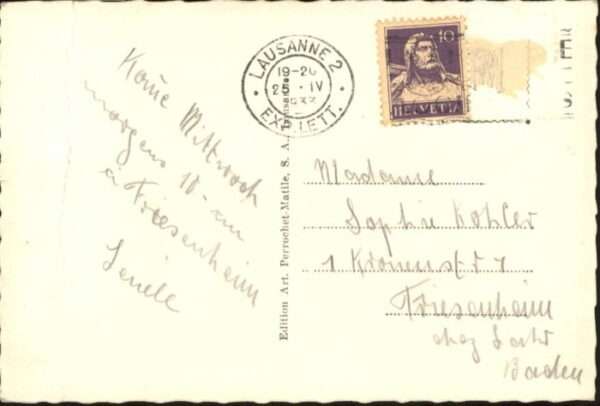 LAUSANNE 2
19-20
25 · IV
EXP. LETT.
10
HELVETIA
Komme Mittwoch
morgens 10
à Friesenheim
Edition Art. Perrochet-Matile, S. A., Lausanne
Madame
Sophie Kohler
1 Kronenstr 1
Friesenheim
chez Lahr
Baden